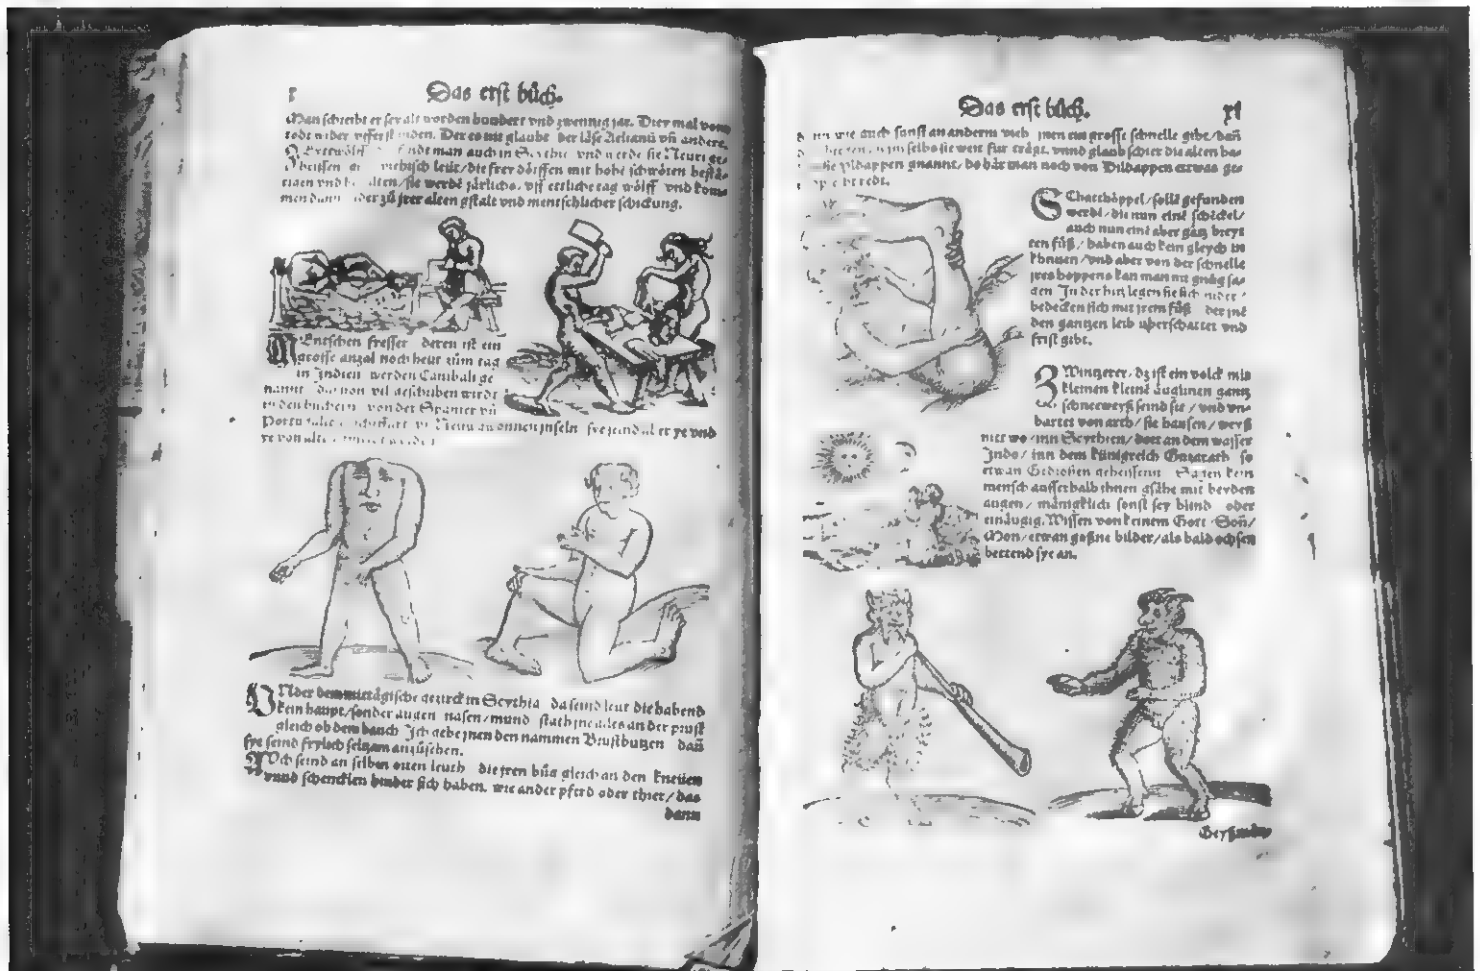 Das erst bůch.
Man schreibt er sey alt worden hundert vnd zwennig jar. Drey mal vom
todt wider vfferst nden. Der es nit glaube der läse Aelianū vñ andere.
ndt man auch in Scythie vnd werdē sie Neuri ge-
heissen leüt/die frey dörffen mit hohē schwören bestä-
tigen vnd sie werdē järlichs vff ettliche tag wölff vnd kom-
men dann zů jrer alten gstalt vnd mentschlicher schickung.
MEntschen fresser deren ist ein
grosse anzal noch heut zům tag
in Jndien werden Canibali ge
nannt vil geschriben wirdt
in den bůchern von der Spanier vñ
jnseln sye vnd
VNder dem mittägische gezirck in Scythia da seind leut die habend
kein haupt/sonder augen nasen/mund an der prust
gleich ob dem bauch Jch gebe jnen den nammen Brustbutzen dañ
sye seind frylich seltzam anzůsehen.
NOch seind an selben orten leuth die jren bůg gleich an den kneüen
vnnd schencklen hinder sich haben. wie ander pferd oder thier/das
dann
Das erst bůch. xi
wie auch sunst an anderm vieh jnen ein grosse schnelle gibt/dañ
selbs sie weit für trägt. vnnd glaub schier die alten ha-
Pildappen gnannt/do här man noch von Dildappen etwas ge-
redt.
SChatthöppel/solle gefunden
werdē/die nun eine schēckel/
auch nun eine aber gātz breyt
ten fůß/haben auch kein gleych im
khneuen/vnd aber von der schnelle
jres hoppens kan man nit gnůg sa-
gen Jn der hitz legen sie sich nider/
bedecken sich mit jrem fůß der jnē
den gantzen leib vberschattet vnd
frist gibt.
ZWintzerer/dz ist ein volck mit
kleinen kleinē äuglinen gantz
schneeweyß seind sie/vnd vn-
bartet von arth/sie hausen/weyß
nitt wo/inn Scythien/dort an dem wasser
Jndo/inn dem künigreich Guzarath so
etwan Gedrosien geheissenn Sagen kein
mensch ausserhalb jhnen gsähe mit beyden
augen/mänigklich sonst sey blind oder
einäugig. Wissen von keinem Gott Soñ/
Mon/etwan goßne bilder/als bald ochsen
bettend sye an.